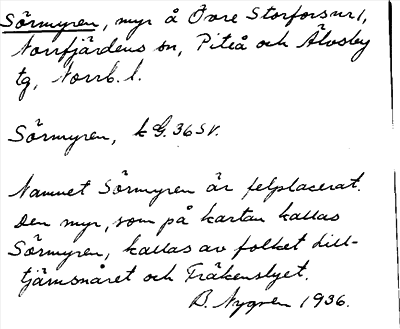 Sörmyren, myr å Övre Storforsnr 1,
Norrfjärdens sn, Piteå och Älvsby
tg, Norrb. l.
Sörmyren, k G. 36 SV.
Namnet Sörmyren är felplacerat.
Den myr, som på kartan kallas
Sörmyren, kallas av folket Lill-
tjärnsnåret och Fräkenslyet.
B. Nygren 1936.